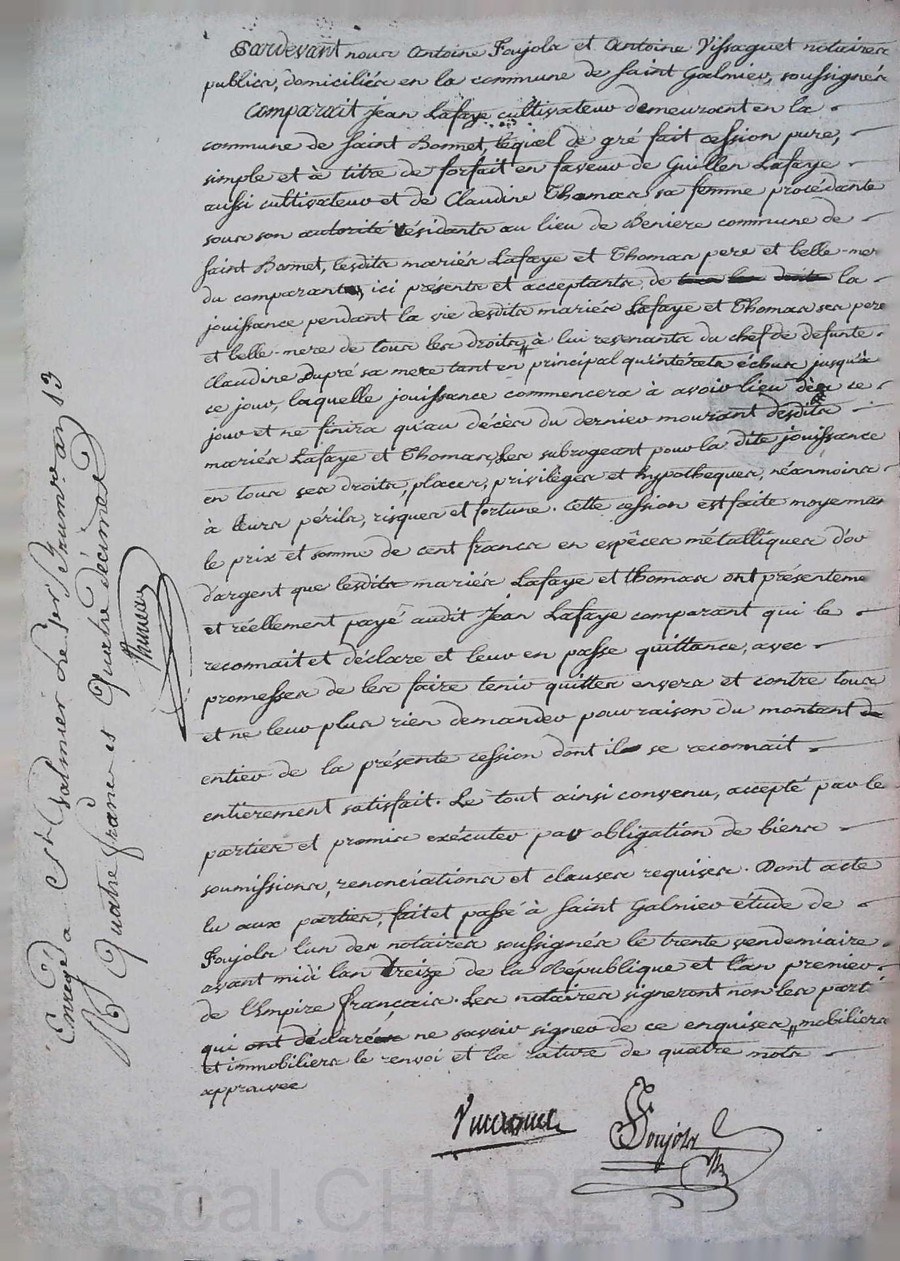 Pardevant nous Antoine Foujols et Antoine Vissaguet notaires
publics, domiciliés en la commune de Saint Galmier, soussignés
Comparait Jean Lafaye cultivateur demeurant en la
commune de Saint Bonnet, lequel de gré fait cession pure,
simple et à titre de forfait en faveur de Guillen Lafaye
aussi cultivateur et de Claudine Thomas, sa femme procédante
sous son autorité résidants au lieu de Beniere commune de
Saint Bonnet, lesdits mariés Lafaye et Thomas pere et belle-mer
du comparant, ici présents et acceptants, de la
jouissance pendant la vie desdits mariés Lafaye et Thomas ses pere
et belle-mere de tous les droits, à lui revenants du chef de defunte
Claudine Dupré sa mere tant en principal qu'intérêts échus jusqu'à
ce jour, laquelle jouissance commencera à avoir lieu dès ce
jour et ne finira qu'au décès du dernier mourant desdits
mariés Lafaye et Thomas, les subrogeant pour la dite jouissance
en tous ses droits, places, privilèges et hypotheques, néanmoins
à leurs périls, risques et fortune. Cette cession est faite moyennan
le prix et somme de cent francs en espêces métalliques d'or
d'argent que lesdits mariés Lafaye et thomas ont présenteme
et réellement payé audit Jean Lafaye comparant qui le
reconnait et déclare et leur en passe quittance, avec
promesses de les faire tenir quittes envers et contre tous
et ne leur plus rien demander pour raison du montant
entier de la présente cession dont il se reconnait
entierement satisfait. Le tout ainsi convenu, accepté par le
parties et promis exécuter par obligation de biens
soumissions, renonciations et clauses requises. Dont acte
lu aux parties, fait et passé à Saint Galmier étude de
Foujols lun des notaires soussignés le trente vendemiaire
avant midi lan treize de la République et l'an premier
de l'Empire français. Les notaires signeront non les parti
qui ont déclaré ne savoir signer de ce enquises, mobiliers
et immobiliers le renvoi et la rature de quatre mots
approuvée
Foujols
Enregé a St Galmier le brumre an 13
R quatre francs et quatre decimes
Pascal CHAREYRON